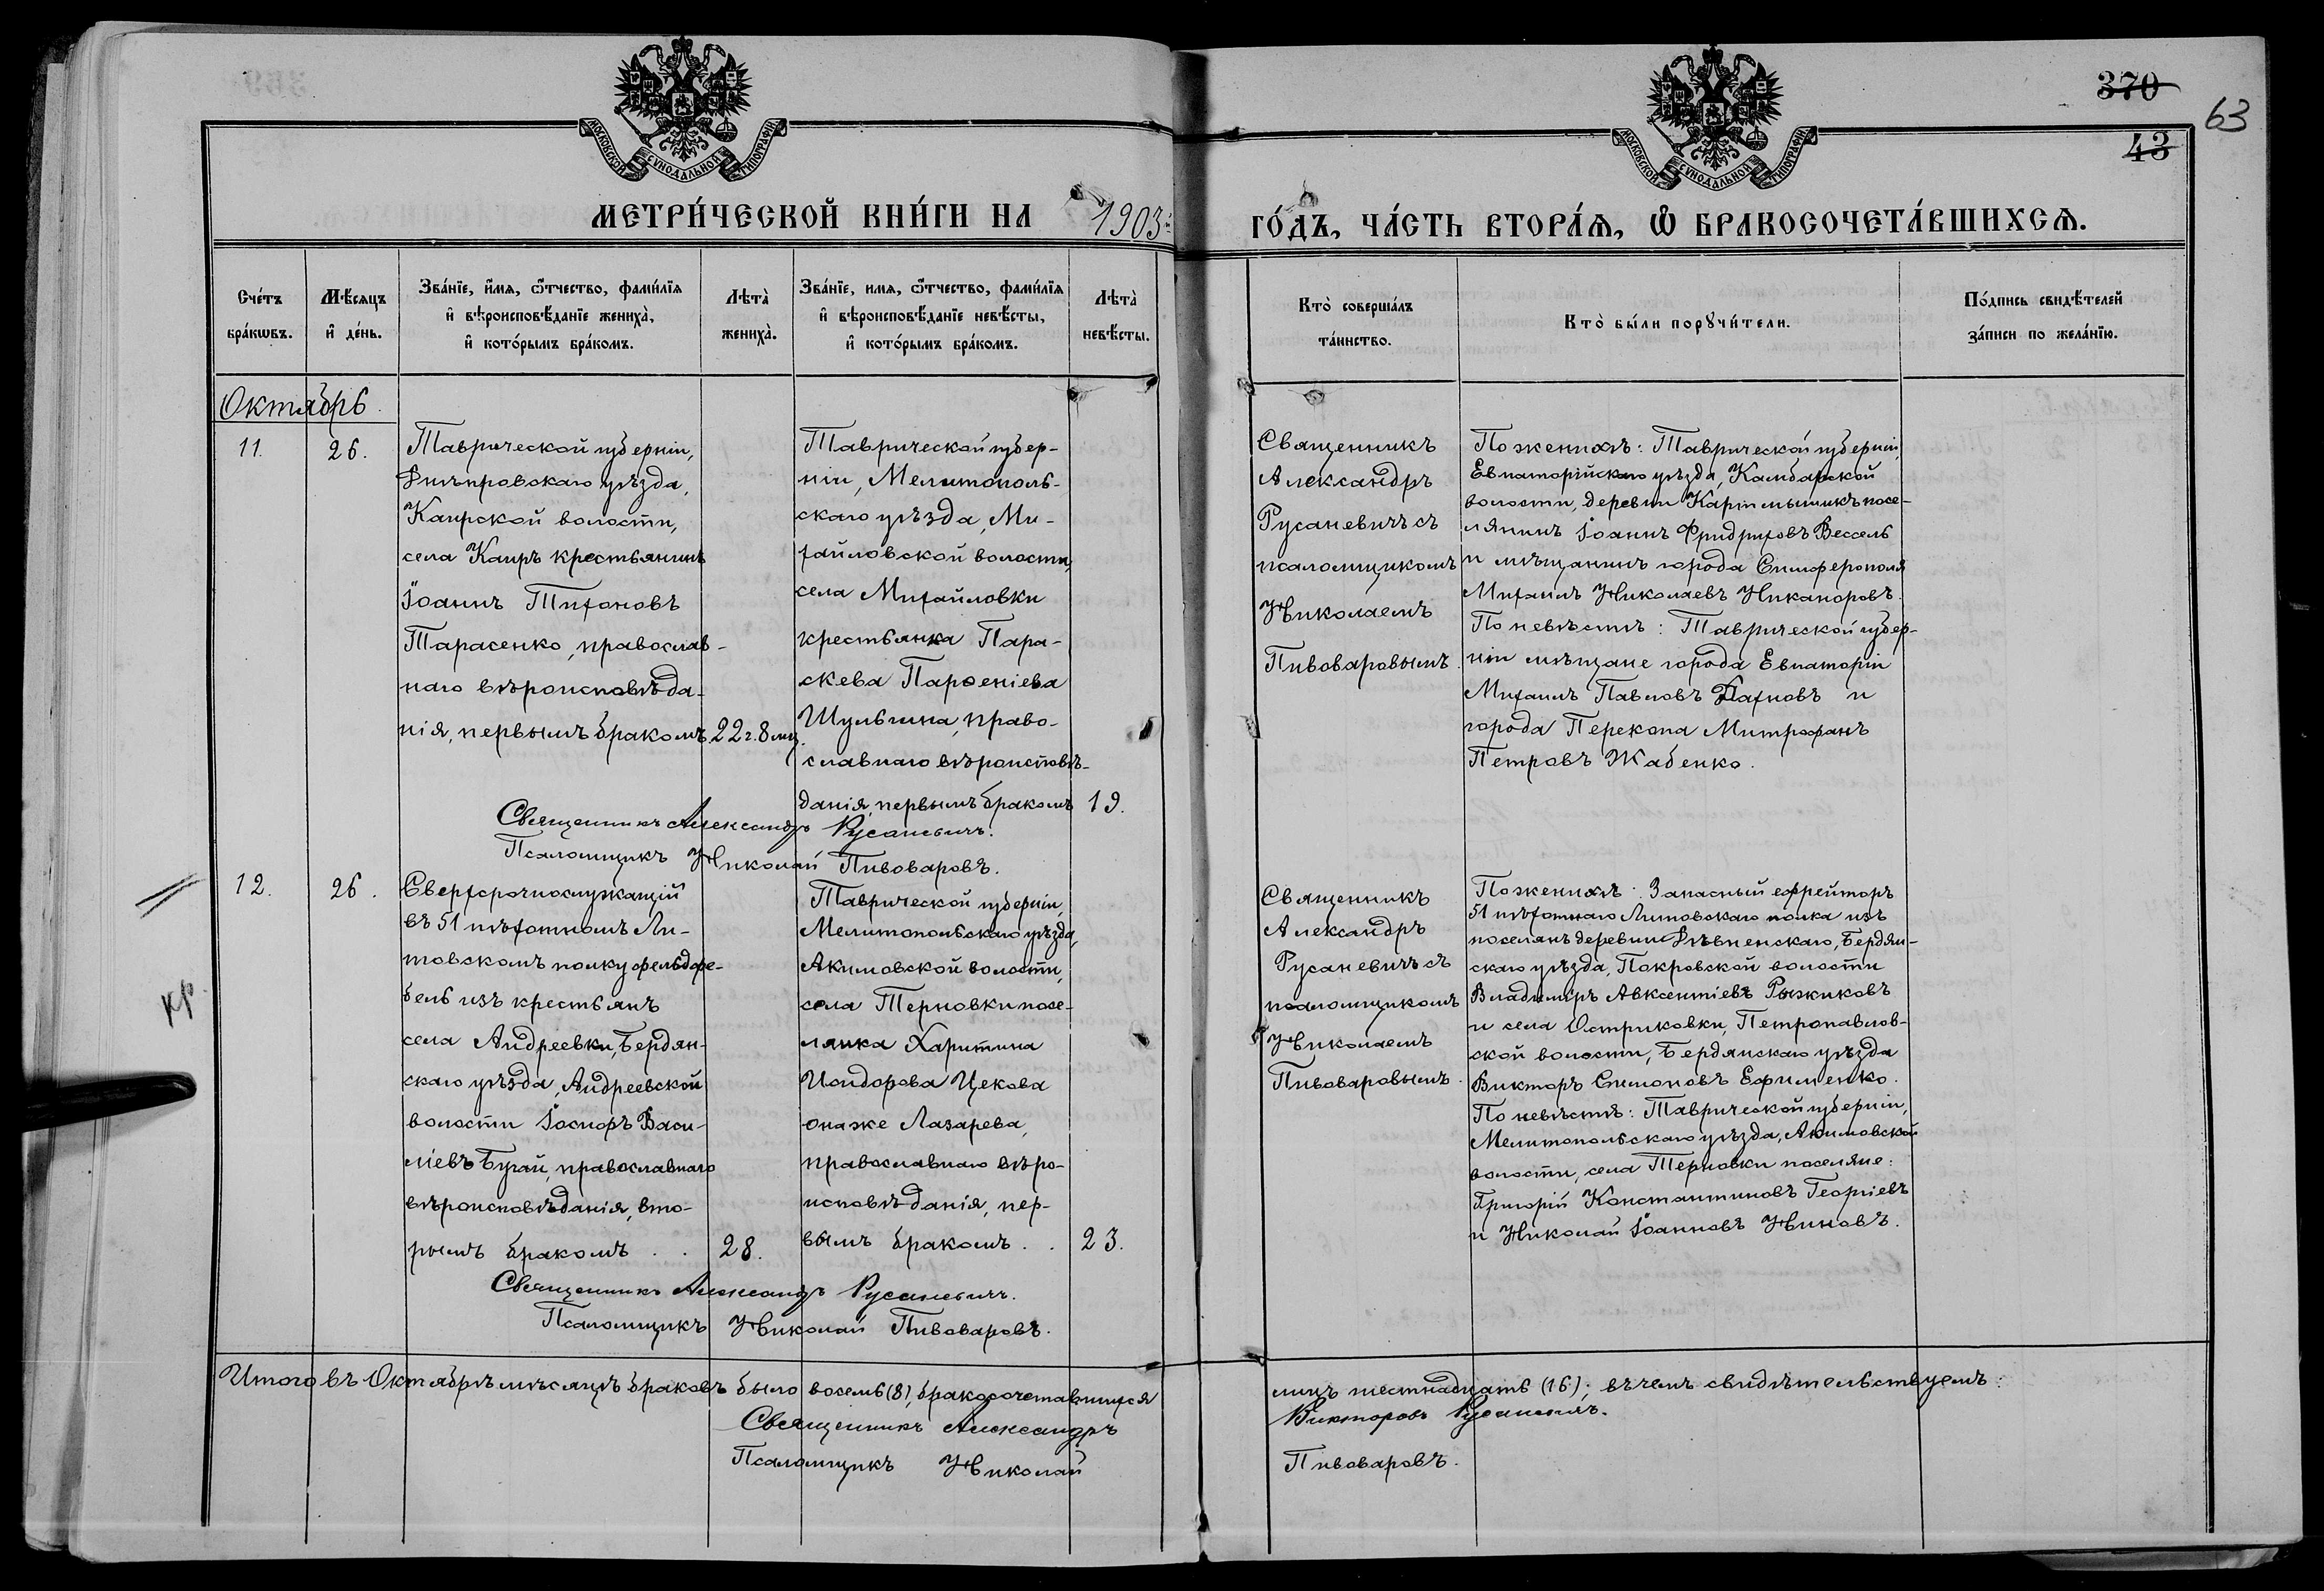 370
63
43
МОСКОВСКОЙ СѴНОДАЛЬНОЙ ТИПОГРАФІИ
МОСКОВСКОЙ СѴНОДАЛЬНОЙ ТИПОГРАФІИ
МЕТРИ́ЧЕСКОЙ КНИ́ГИ НА 1903й
ГО́ДЪ, ЧА́СТЬ ВТОРА́Ѧ, Ѿ БРАКОСОЧЕТА́ВШИХСѦ.
Сче́тъ
бра́кѡвъ.
Мѣ́сяцъ
и҆ де́нь.
Зва́нїе, и҆́мя, ѻ҆́тчество, фами́лїя
и҆ вѣроисповѣ́данїе жениха̀,
и҆ кото́рымъ бра́комъ.
Лѣта̀
жениха̀.
Зва́нїе, имя, ѻ҆́тчество, фами́лїя
и҆ вѣроисповѣ́данїе невѣ́сты,
и҆ кото́рымъ бра́комъ.
Лѣта̀
невѣ́сты.
Кто̀ соверша́лъ
та́инство.
Кто̀ бы́ли порꙋчи́тели.
По́дпись свидѣ́телей
за́писи по жела́нїю.
Октябрь.
11.
26.
Таврической губерніи,
Днѣпровскаго уѣзда,
Каирской волости,
села Каиръ крестьянинъ
Іоаннъ Тихоновъ
Тарасенко, православ-
наго вѣроисповѣда-
нія, первымъ бракомъ
22 г. 8 мц.
Таврической губер-
ніи, Мелитополь-
скаго уѣзда, Ми-
хайловской волости,
села Михайловки
крестьянка Пара-
скева Парѳеніева
Шульгина, право-
славнаго вѣроисповѣ-
данія, первымъ бракомъ
19.
Священникъ Александръ Русаневичъ.
Псаломщикъ Николай Пивоваровъ.
Священникъ
Александръ
Русаневичъ съ
псаломщикомъ
Николаемъ
Пивоваровымъ.
По женихѣ: Таврической губерніи,
Евпаторійскаго уѣзда, Камбарской
волости, деревни посе-
лянинъ Іоаннъ Фридриховъ Вессель
и мѣщанинъ города Симферополя
Михаилъ Николаевъ Никаноровъ.
По невѣстѣ: Таврической губер-
ніи мѣщане города Евпаторіи
Михаилъ Павловъ Пахновъ и
города Перекопа Митрофанъ
Петровъ Жабенко.
12.
26.
кр
Сверхсрочнослужащій
въ 51 пѣхотномъ Ли-
товскомъ полку фельдфе-
бель изъ крестьянъ
села Андреевки, Бердян-
скаго уѣзда, Андреевской
волости Іосифъ Васи-
ліевъ Бугай, православнаго
вѣроисповѣданія, вто-
рымъ бракомъ . .
28.
Таврической губерніи,
Мелитопольскаго уѣзда,
Акимовской волости,
села Терновки посе-
лянка Харитина
Исидорова Цекова
она же Лазарева,
православнаго вѣро-
исповѣданія, пер-
вымъ бракомъ . .
23.
Священникъ Александръ Русаневичъ.
Псаломщикъ Николай Пивоваровъ.
Священникъ
Александръ
Русаневичъ съ
псаломщикомъ
Николаемъ
Пивоваровымъ.
По женихѣ: Запасный ефрейторъ
51 пѣхотнаго Литовскаго полка изъ
поселянъ деревни Бердян-
скаго уѣзда, Покровской волости
Владиміръ Авксентіевъ Рыжиковъ
и села Остриковки, Петропавлов-
ской волости, Бердянскаго уѣзда
Викторъ Симоновъ Ефименко.
По невѣстѣ: Таврической губерніи,
Мелитопольскаго уѣзда, Акимовской
волости, села Терновки поселяне:
Григорій Константиновъ Георгіевъ
и Николай Іоанновъ Ниновъ.
Итого въ Октябрѣ мѣсяцѣ браковъ было восемь (8), бракосочетавшихся
лицъ шестнадцать (16); въ чемъ свидѣтельствуемъ:
Священникъ Александръ
Викторовъ Русаневичъ.
Псаломщикъ Николай
Пивоваровъ.